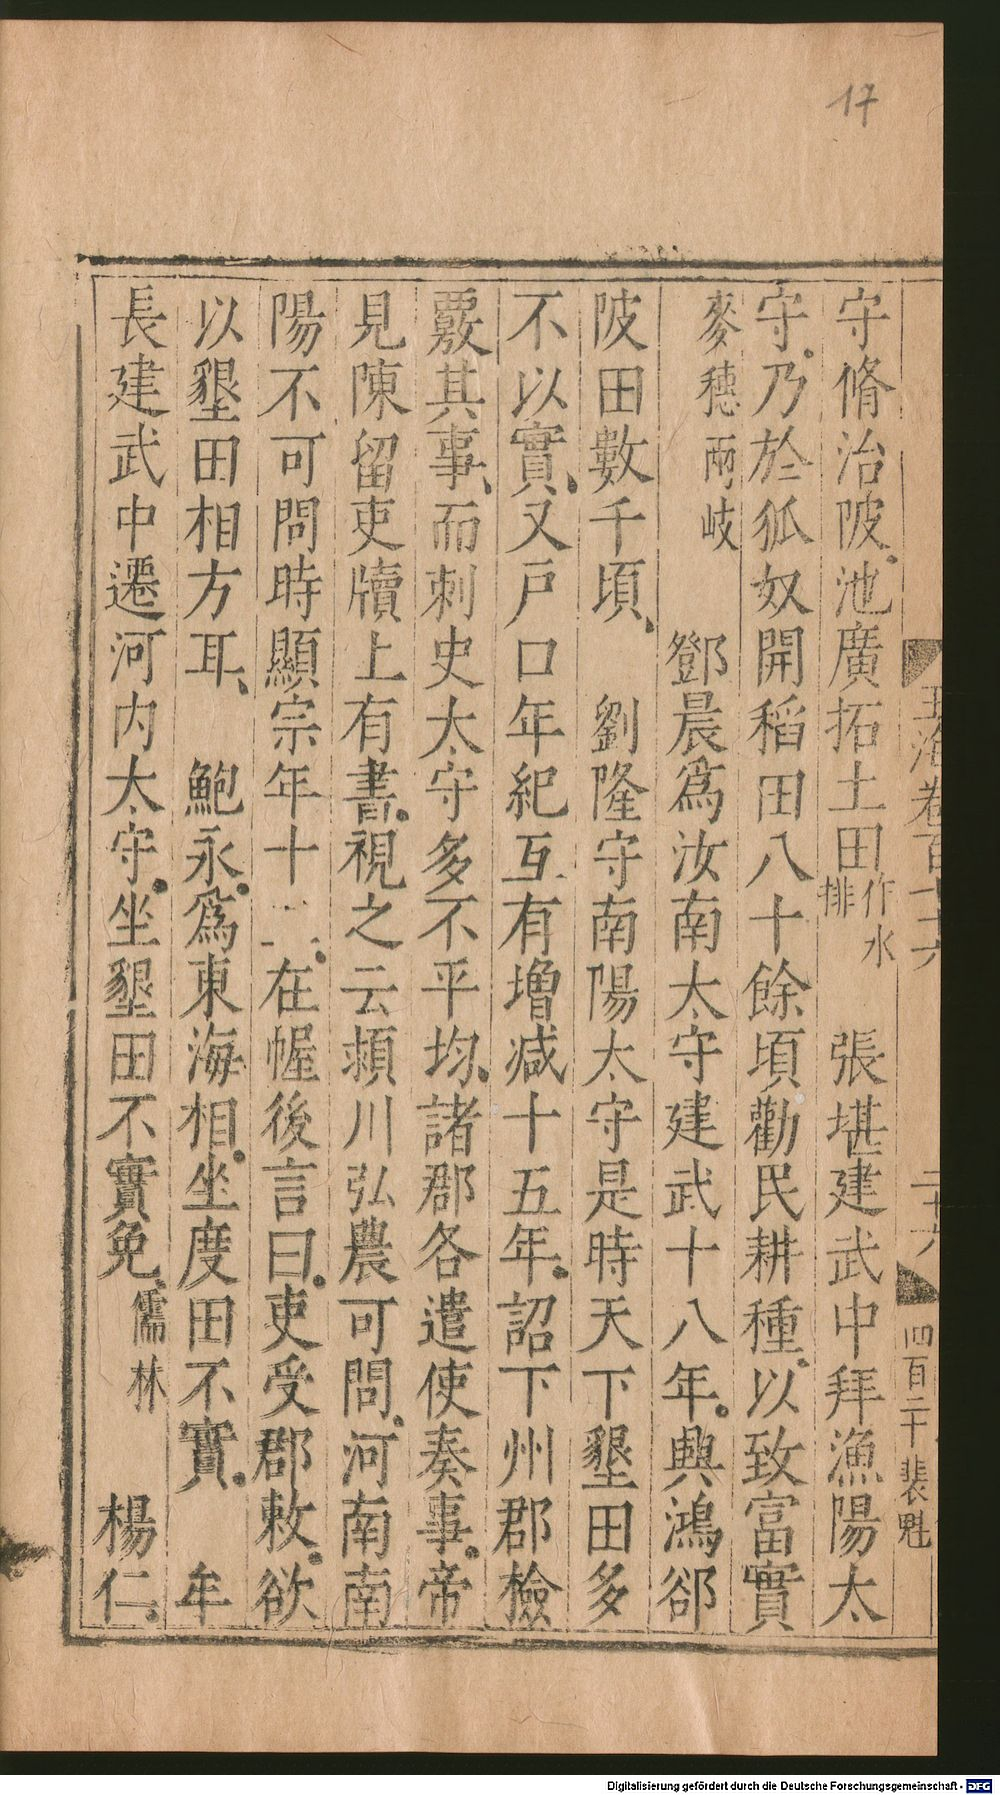 17
玉海卷百 二十六 四百二十 裴魁
守脩治陂池廣拓土田 作水排 張堪建武中拜漁陽太
守乃於狐奴開稻田八十餘頃勸民耕種以致富實
麥穗兩岐 鄧晨爲汝南太守建武十八年興鴻郤
陂田數千頃 劉隆守南陽太守是時天下墾田多
不以實又戶口年紀互有增減十五年詔下州郡檢
覈其事而刺史太守多不平均諸郡各遣使奏事帝
見陳留吏牘上有書視之云潁川弘農可問河南南
陽不可問時顯宗年十 在幄後言曰吏受郡敕欲
以墾田相方耳 鮑永爲東海相坐度田不實 牟
長建武中遷河内太守坐墾田不實免 儒林 楊仁
Digitalisierung gefördert durch die Deutsche Forschungsgemeinschaft - DFG